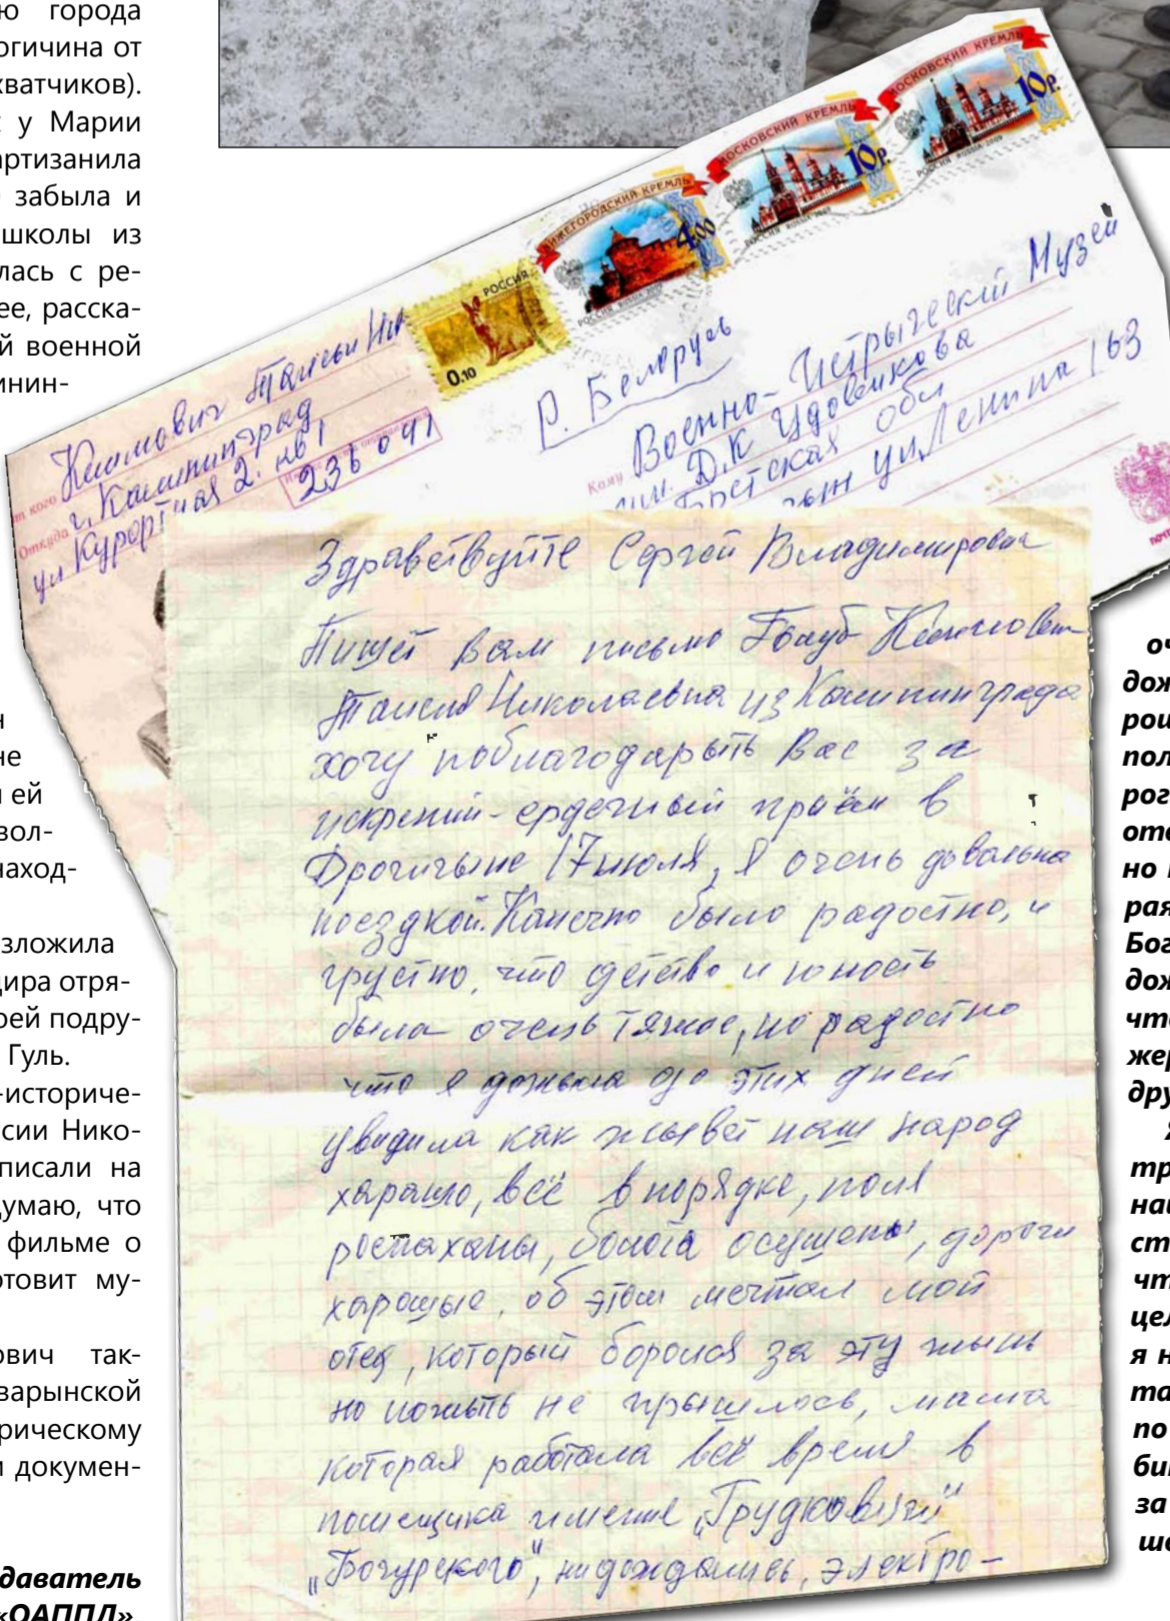 ю города
огичина от
хватчиков).
у Марии
артизанила
забыла и
школы из
лась с ре-
ее, расска-
й военной
инин-
н
не
и ей
вол-
наход-
зложила
дира отря-
оей подру-
Гуль.
-историче-
сии Нико-
писали на
думаю, что
фильме о
отовит му-
ович так-
варынской
рическому
и докумен-
даватель
«ОАППЛ»
МОСКОВСКИЙ КРЕМЛЬ
10р.
РОССИЯ RUSSIA 2009
МОСКОВСКИЙ КРЕМЛЬ
10р.
РОССИЯ RUSSIA 2009
НИЖЕГОРОДСКИЙ КРЕМЛЬ
4.00
РОССИЯ RUSSIA
РОССИЯ
0.10
от кого Климович Таисьи Ник
Откуда г. Калининград
ул Курортная 2. кв 1
236041
Р. Беларусь
Кому Военно-Истрыческий Музей
им. Д.К Удовикова
Брестская обл
ул. Ленина 163
Здравствуйте Сергей Владимирович
Пишет вам письмо Голуб Климович
Таисия Николаевна из Калининграда
хочу поблагодарыть Вас за
искрений-ердечный приём в
Дрогичыне 17 июля, я очень довольна
поездкой. Канечно было радостно, и
грустно, что детство и юность
была очень тяжое, но радостно
что я дожыла до этих дней
увидила как жывёт наш народ
харашо, всё в порядке, поля
роспаханы, болота осушены, дороги
харошые, об этом мечтал мой
отец, который боролся за эту жызнь
но пожыть не прышлось, мама
которая работала всё время в
помещика имение
нидождались, электро-
оч
дож
рош
пол
рог
оте
но
рая
Бог
дож
что
жер
дру
тр
наш
ст
чт
цел
я н
та
по
би
за
ше